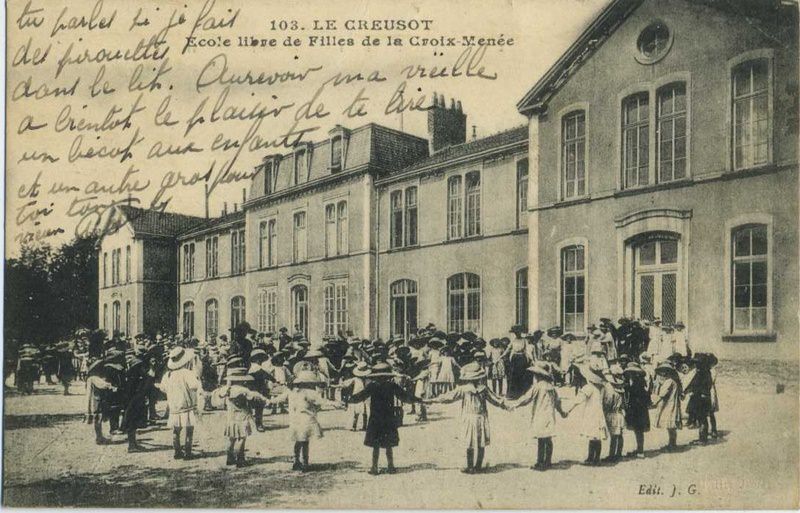 tu parles si je fais
des pirouettes
dans le lit. Aurevoir ma vieille
a bientot le plaisir de te lire
un bécot aux enfants
et un autre gros pour
toi ton
vieux
103. LE CREUSOT
Ecole libre de Filles de la Croix-Menée
Edit. J. G.